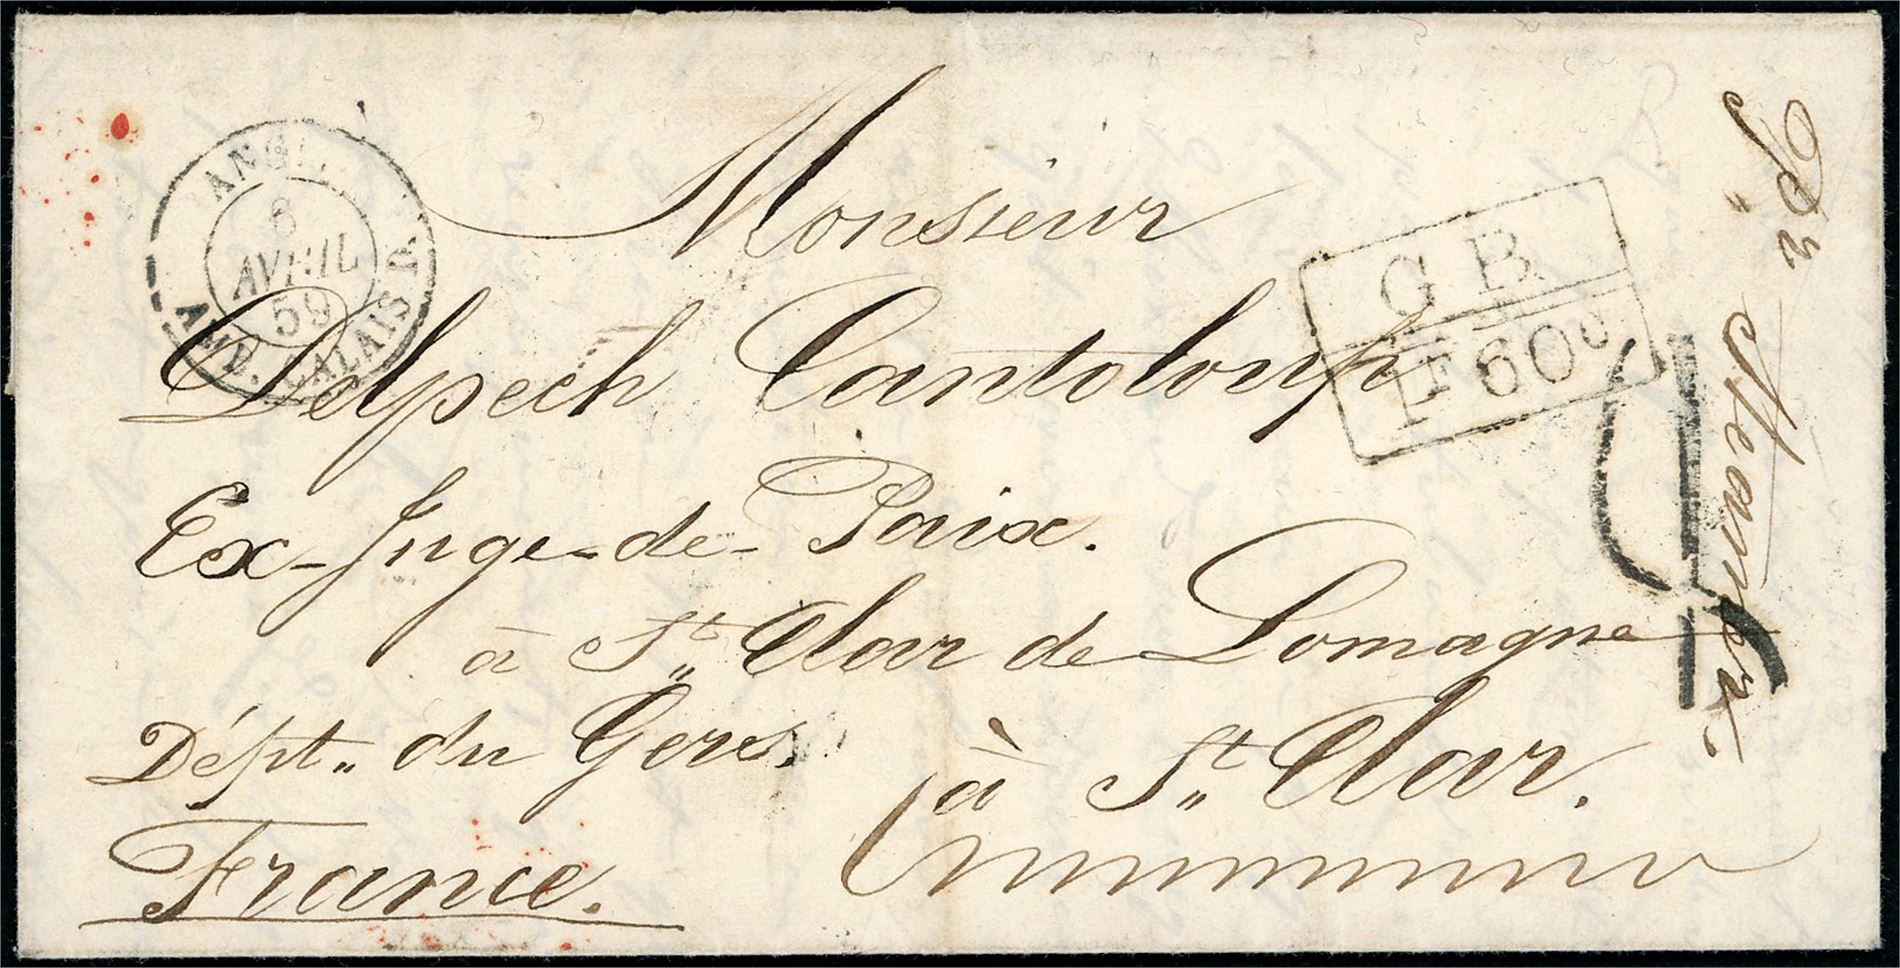 ANGL.
6
AVRIL
59
AMB. CALAIS
Monsieur
Delpech Cantaloup
Ex-Juge-de-Paix.
à St. Clar de Lomagne
Dépt. du Gers.
à St. Clar.
France.
GB
1F60c
Pr. Steamer.